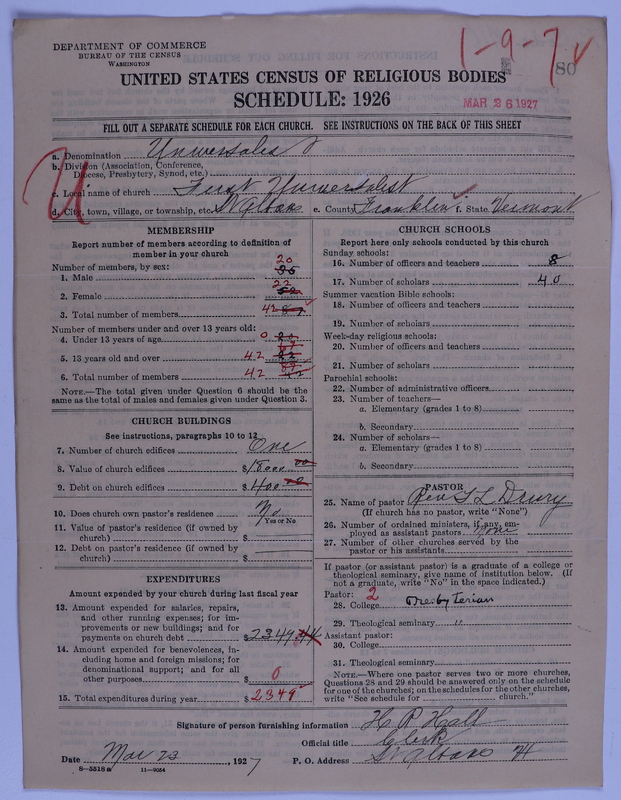 DEPARTMENT OF COMMERCE
BUREAU OF THE CENSUS
WASHINGTON
1-9-7
80
UNITED STATES CENSUS OF RELIGIOUS BODIES
SCHEDULE: 1926
MAR 26 1927
FILL OUT A SEPARATE SCHEDULE FOR EACH CHURCH. SEE INSTRUCTIONS ON THE BACK OF THIS SHEET
U
a. Denomination Universalist
b. Division (Association, Conference, Diocese, Presbytery, Synod, etc.)
c. Local name of church First Universalist
d. City, town, village, or township, etc. St Albans e. County Franklin f. State Vermont
MEMBERSHIP
Report number of members according to definition of member in your church
Number of members, by sex:
1. Male 20
2. Female 22
3. Total number of members 42
Number of members under and over 13 years old:
4. Under 13 years of age 0
5. 13 years old and over 42
6. Total number of members 42
NOTE.—The total given under Question 6 should be the same as the total of males and females given under Question 3.
CHURCH BUILDINGS
See instructions, paragraphs 10 to 12
7. Number of church edifices One
8. Value of church edifices $
9. Debt on church edifices $400
10. Does church own pastor's residence No
Yes or No
11. Value of pastor's residence (if owned by church) $
12. Debt on pastor's residence (if owned by church) $
EXPENDITURES
Amount expended by your church during last fiscal year
13. Amount expended for salaries, repairs, and other running expenses; for improvements or new buildings; and for payments on church debt $2349.44
14. Amount expended for benevolences, including home and foreign missions; for denominational support; and for all other purposes $0
15. Total expenditures during year $2349
CHURCH SCHOOLS
Report here only schools conducted by this church
Sunday schools:
16. Number of officers and teachers 8
17. Number of scholars 40
Summer vacation Bible schools:
18. Number of officers and teachers
19. Number of scholars
Week-day religious schools:
20. Number of officers and teachers
21. Number of scholars
Parochial schools:
22. Number of administrative officers
23. Number of teachers—
a. Elementary (grades 1 to 8)
b. Secondary
24. Number of scholars—
a. Elementary (grades 1 to 8)
b. Secondary
PASTOR
25. Name of pastor Rev. L Drury
(If church has no pastor, write "None")
26. Number of ordained ministers, if any, employed as assistant pastors None
27. Number of other churches served by the pastor or his assistants
If pastor (or assistant pastor) is a graduate of a college or theological seminary, give name of institution below. (If not a graduate, write "No" in the space indicated.)
Pastor: 2
28. College Presbyterian
29. Theological seminary "
Assistant pastor:
30. College
31. Theological seminary
NOTE.—Where one pastor serves two or more churches, Questions 28 and 29 should be answered only on the schedule for one of the churches; on the schedules for the other churches, write "See schedule for church."
Signature of person furnishing information H. P. Hall
Official title Clerk
Date Mar 23, 1927 P. O. Address St Albans Vt
8-5518a 11-9064